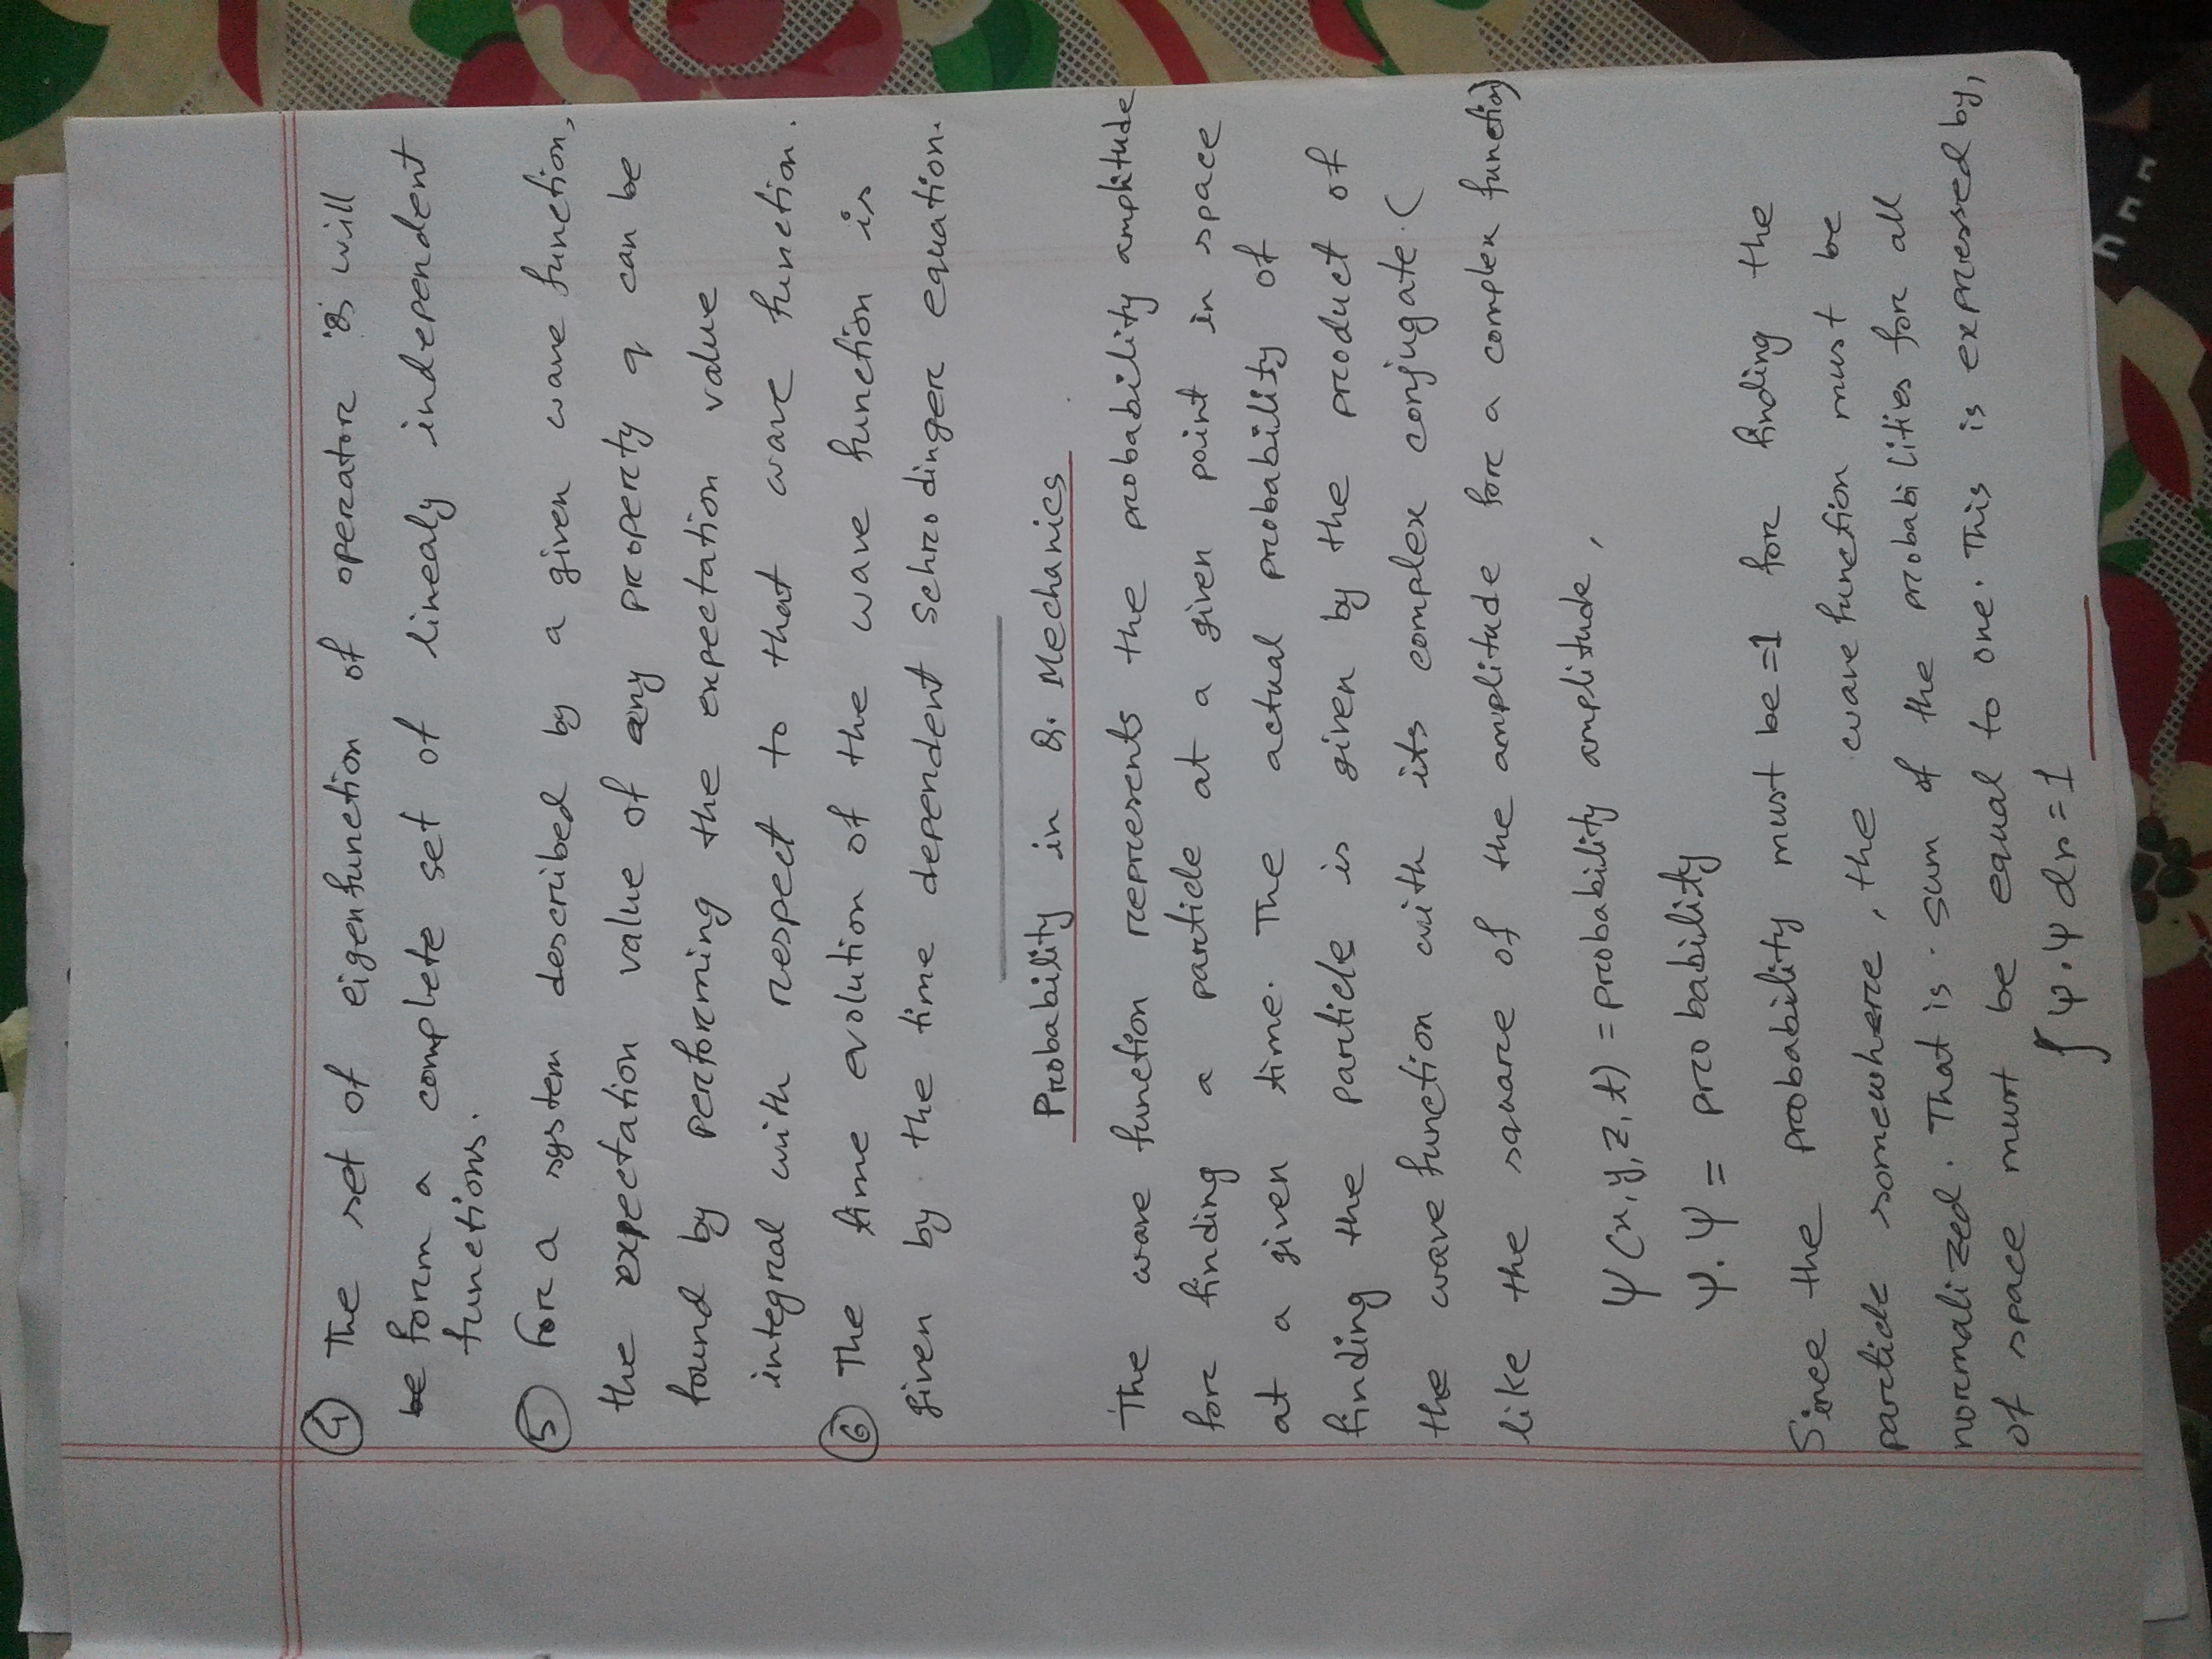 ④ The set of eigenfunction of operator 'Q' will
be form a complete set of linealy independent
functions.
⑤ For a system described by a given wave function,
the expectation value of any property q can be
found by performing the expectation value
integral with respect to that wave function.
⑥ The time evolution of the wave function is
given by the time dependent Schrodinger equation.
Probability in Q. Mechanics
The wave function represents the probability amplitude
for finding a particle at a given point in space
at a given time. The actual probability of
finding the particle is given by the product of
the wave function with its complex conjugate. (
like the square of the amplitude for a complex function)
Ψ (x, y, z, t) = probability amplitude,
Ψ. Ψ = probability
Since the probability must be =1 for finding the
particle somewhere, the wave function must be
normalized. That is . sum of the probabilities for all
of space must be equal to one. This is expressed by,
∫ Ψ. Ψ dr = 1